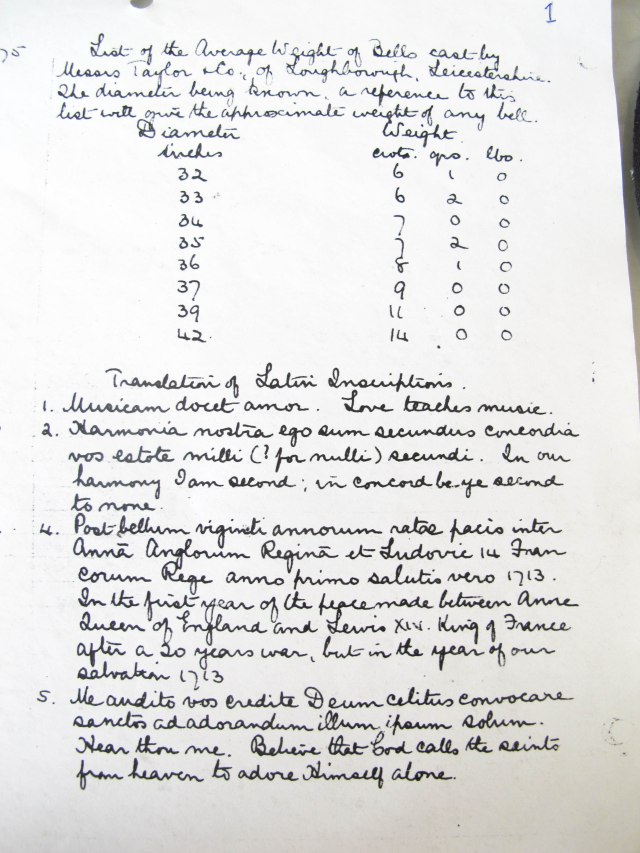 1
75
List of the Average Weight of Bells cast by
Messrs Taylor & Co., of Loughborough, Leicestershire.
The diameter being known, a reference to this
list will give the approximate weight of any bell.
Diameter Weight
inches cwts. qrs. lbs.
32 6 1 0
33 6 2 0
34 7 0 0
35 7 2 0
36 8 1 0
37 9 0 0
39 11 0 0
42 14 0 0
Translation of Latin Inscriptions.
1. Musicam docet amor. Love teaches music.
2. Harmonia nostra ego sum secundus concordia
vos estote milli (? for nulli) secundi. In our
harmony I am second; in concord be ye second
to none.
4. Post bellum viginti annorum ratae pacis inter
Annā Anglorum Reginā et Ludovic 14 Fran
corum Rege anno primo salutis vero 1713.
In the first year of the peace made between Anne
Queen of England and Lewis XIV. King of France
after a 20 years war, but in the year of our
salvation 1713
5. Me audito vos credite Deum celitus convocare
sanctos ad adorandum illum ipsum solum.
Hear thou me. Believe that God calls the saints
from heaven to adore Himself alone.